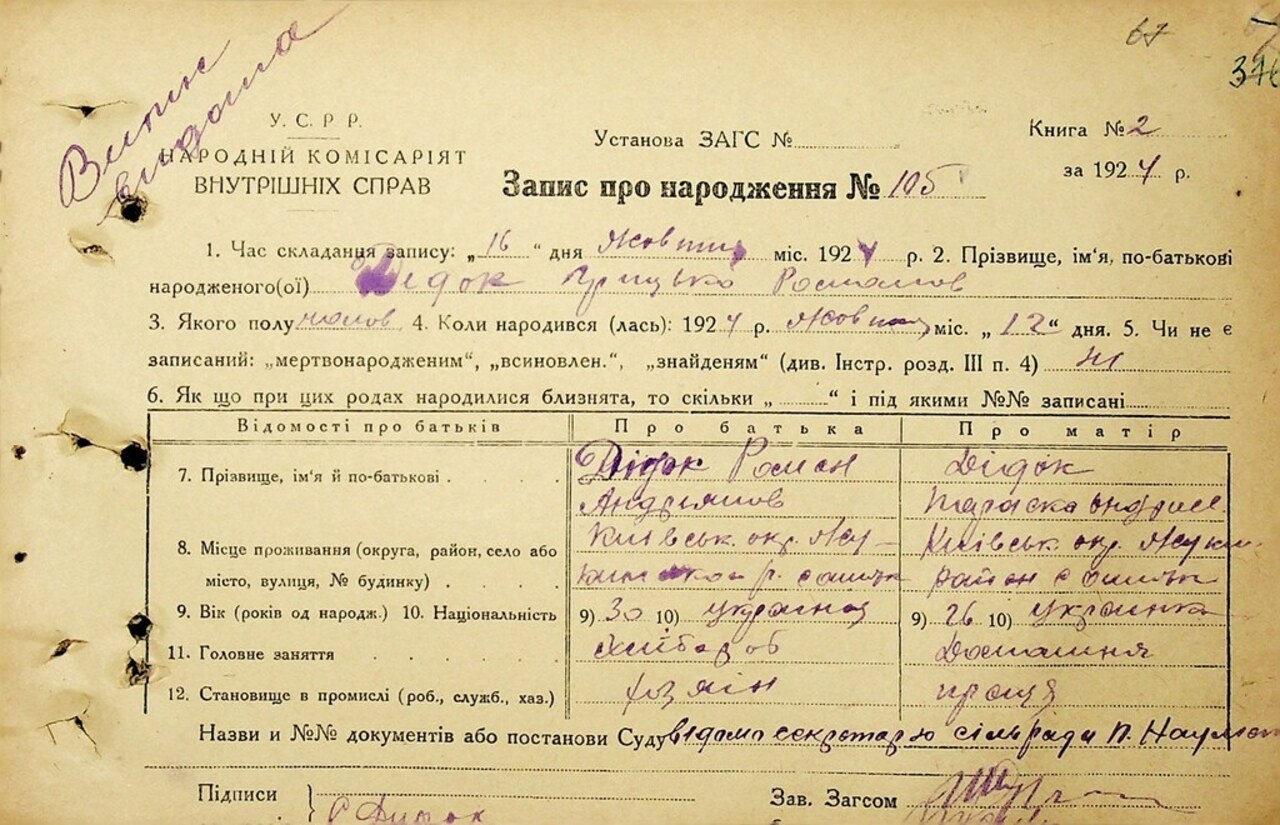 67
Випис
видана
У. С. Р. Р.
НАРОДНІЙ КОМІСАРІЯТ
ВНУТРІШНІХ СПРАВ
Установа ЗАГС №
Книга № 2
за 1924 р.
Запис про народження № 105
1. Час складання запису: „16“ дня Жовтня міс. 1924 р. 2. Прізвище, ім'я, по-батькові
народженого(ої) Дідок Грицько Романов
3. Якого полу 4. Коли народився (лась): 1924 р. Жовтня міс. „12“ дня. 5. Чи не є
записаний: „мертвонародженим“, „всиновлен.“, „знайденям“ (див. Інстр. розд. III п. 4) Ні
6. Як що при цих родах народилися близнята, то скільки „ “ і під якими №№ записані
Відомості про батьків Про батька Про матір
7. Прізвище, ім'я й по-батькові Дідок Роман Дідок
Андріянов Параска
8. Місце проживання (округа, район, село або Київськ. окр. Київськ. окр.
місто, вулиця, № будинку) район
9. Вік (років од народж.) 10. Національність 9) 30 10) українец 9) 26 10) українка
11. Головне заняття Хлібороб Домашня
12. Становище в промислі (роб., служб., хаз.) хозяїн праця
Назви и №№ документів або постанови Суду Відомо секретарю сільради П.
Підписи Зав. Загсом